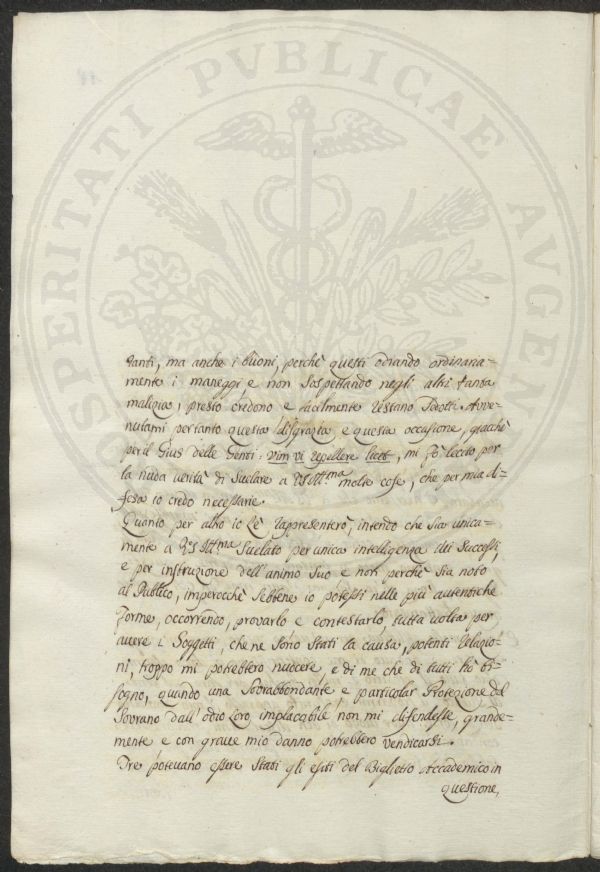 PROSPERITATI PVBLICAE AVGENDAE
tanti, ma anche i buoni, perchè questi odiando ordinaria=
mente i maneggi e non sospettando negli altri tanta
malizia, presto credono e facilmente restano sedotti. Avve=
nutami pertanto questa disgrazia e questa occasione, giacchè
per il Gius delle Genti: vim vi repellere licet, mi fò lecito per
la nuda verità di svelare a VS Ill.ma molte cose, che per mia di=
fesa io credo necessarie.
Quanto per altro io Le rappresenterò, intendo che sia unica=
mente a VS Ill.ma svelato per unica intelligenza dei successi,
e per instruzione dell'animo suo e non perchè sia noto
al Publico, imperocchè sebbene io potessi nelle più autentiche
forme, occorrendo, provarlo e contestarlo, tutta volta per
avere i soggetti, che ne sono stati la causa, potenti relazio=
ni, troppo mi potrebbero nuocere, e di me che di tutti hò bi=
sogno, quando una sovrabbondante e particolar Protezione del
Sovrano dall'odio loro implacabile non mi difendesse, grande=
mente e con grave mio danno potrebbero vendicarsi.
Tre potevano essere stati gli esiti del Biglietto Accademico in
questione,